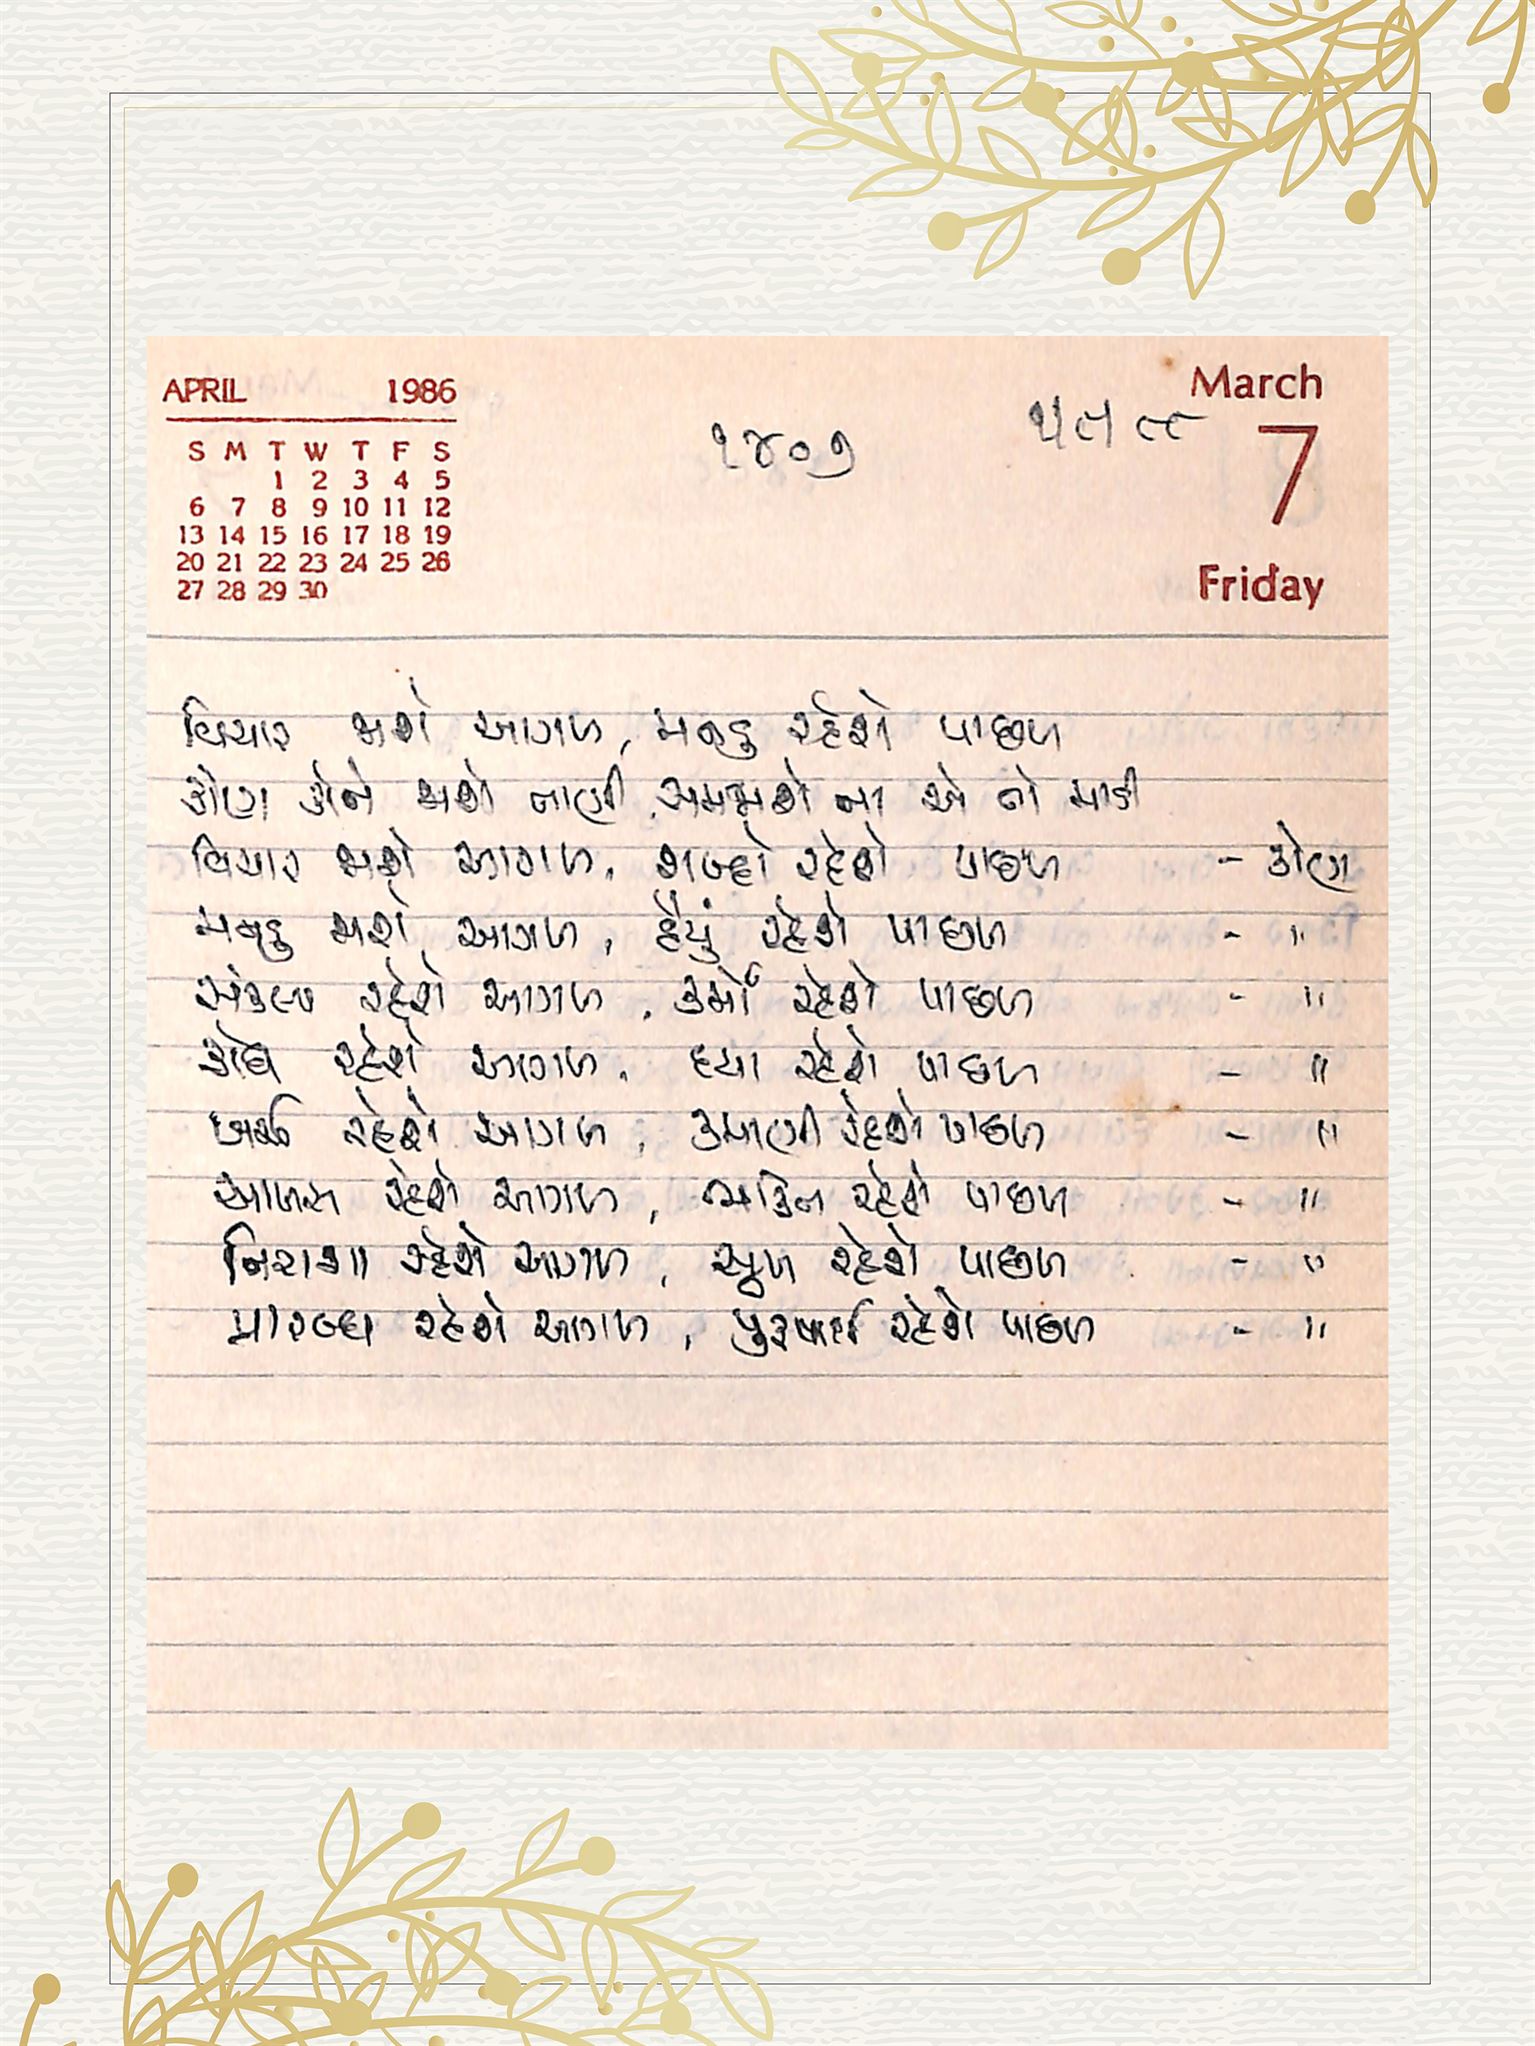 APRIL 1986
S M T W T F S
1 2 3 4 5
6 7 8 9 10 11 12
13 14 15 16 17 18 19
20 21 22 23 24 25 26
27 28 29 30
૧૪૦૭
March
7
Friday
વિચાર જાશે આગળ, મનડુ રહેશે પાછળ
કોણ કોને જાશે તાણી, સમજાશે ના એ તો માડી
વિચાર જાશે આગળ, શબ્દો રહેશે પાછળ - કોણ
મનડુ જાશે આગળ, હૈયું રહેશે પાછળ - "
સંકલ્પ રહેશે આગળ, કર્મો રહેશે પાછળ - "
ક્રોધ રહેશે આગળ, દયા રહેશે પાછળ - "
ખર્ચ રહેશે આગળ, કમાણી રહેશે પાછળ - "
આળસ રહેશે આગળ, ભક્તિ રહેશે પાછળ - "
નિરાશા રહેશે આગળ, સુખ રહેશે પાછળ - "
પ્રારબ્ધ રહેશે આગળ, પુરુષાર્થ રહેશે પાછળ - "